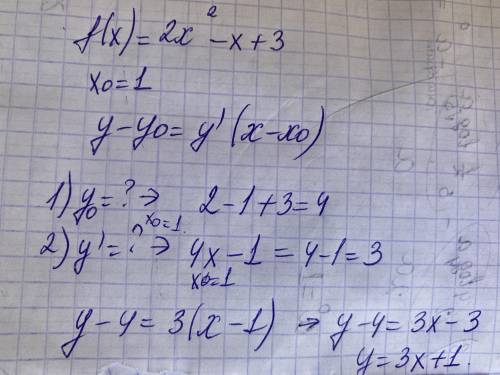 f(x) = 2x² - x + 3
x₀ = 1
y - y₀ = y' (x - x₀)
1) y₀ = ? ⇒ 2 - 1 + 3 = 4
x₀=1.
2) y' = ? ⇒ 4x - 1 = 4 - 1 = 3
x₀=1
y - 4 = 3(x - 1) → y - 4 = 3x - 3
y = 3x + 1.